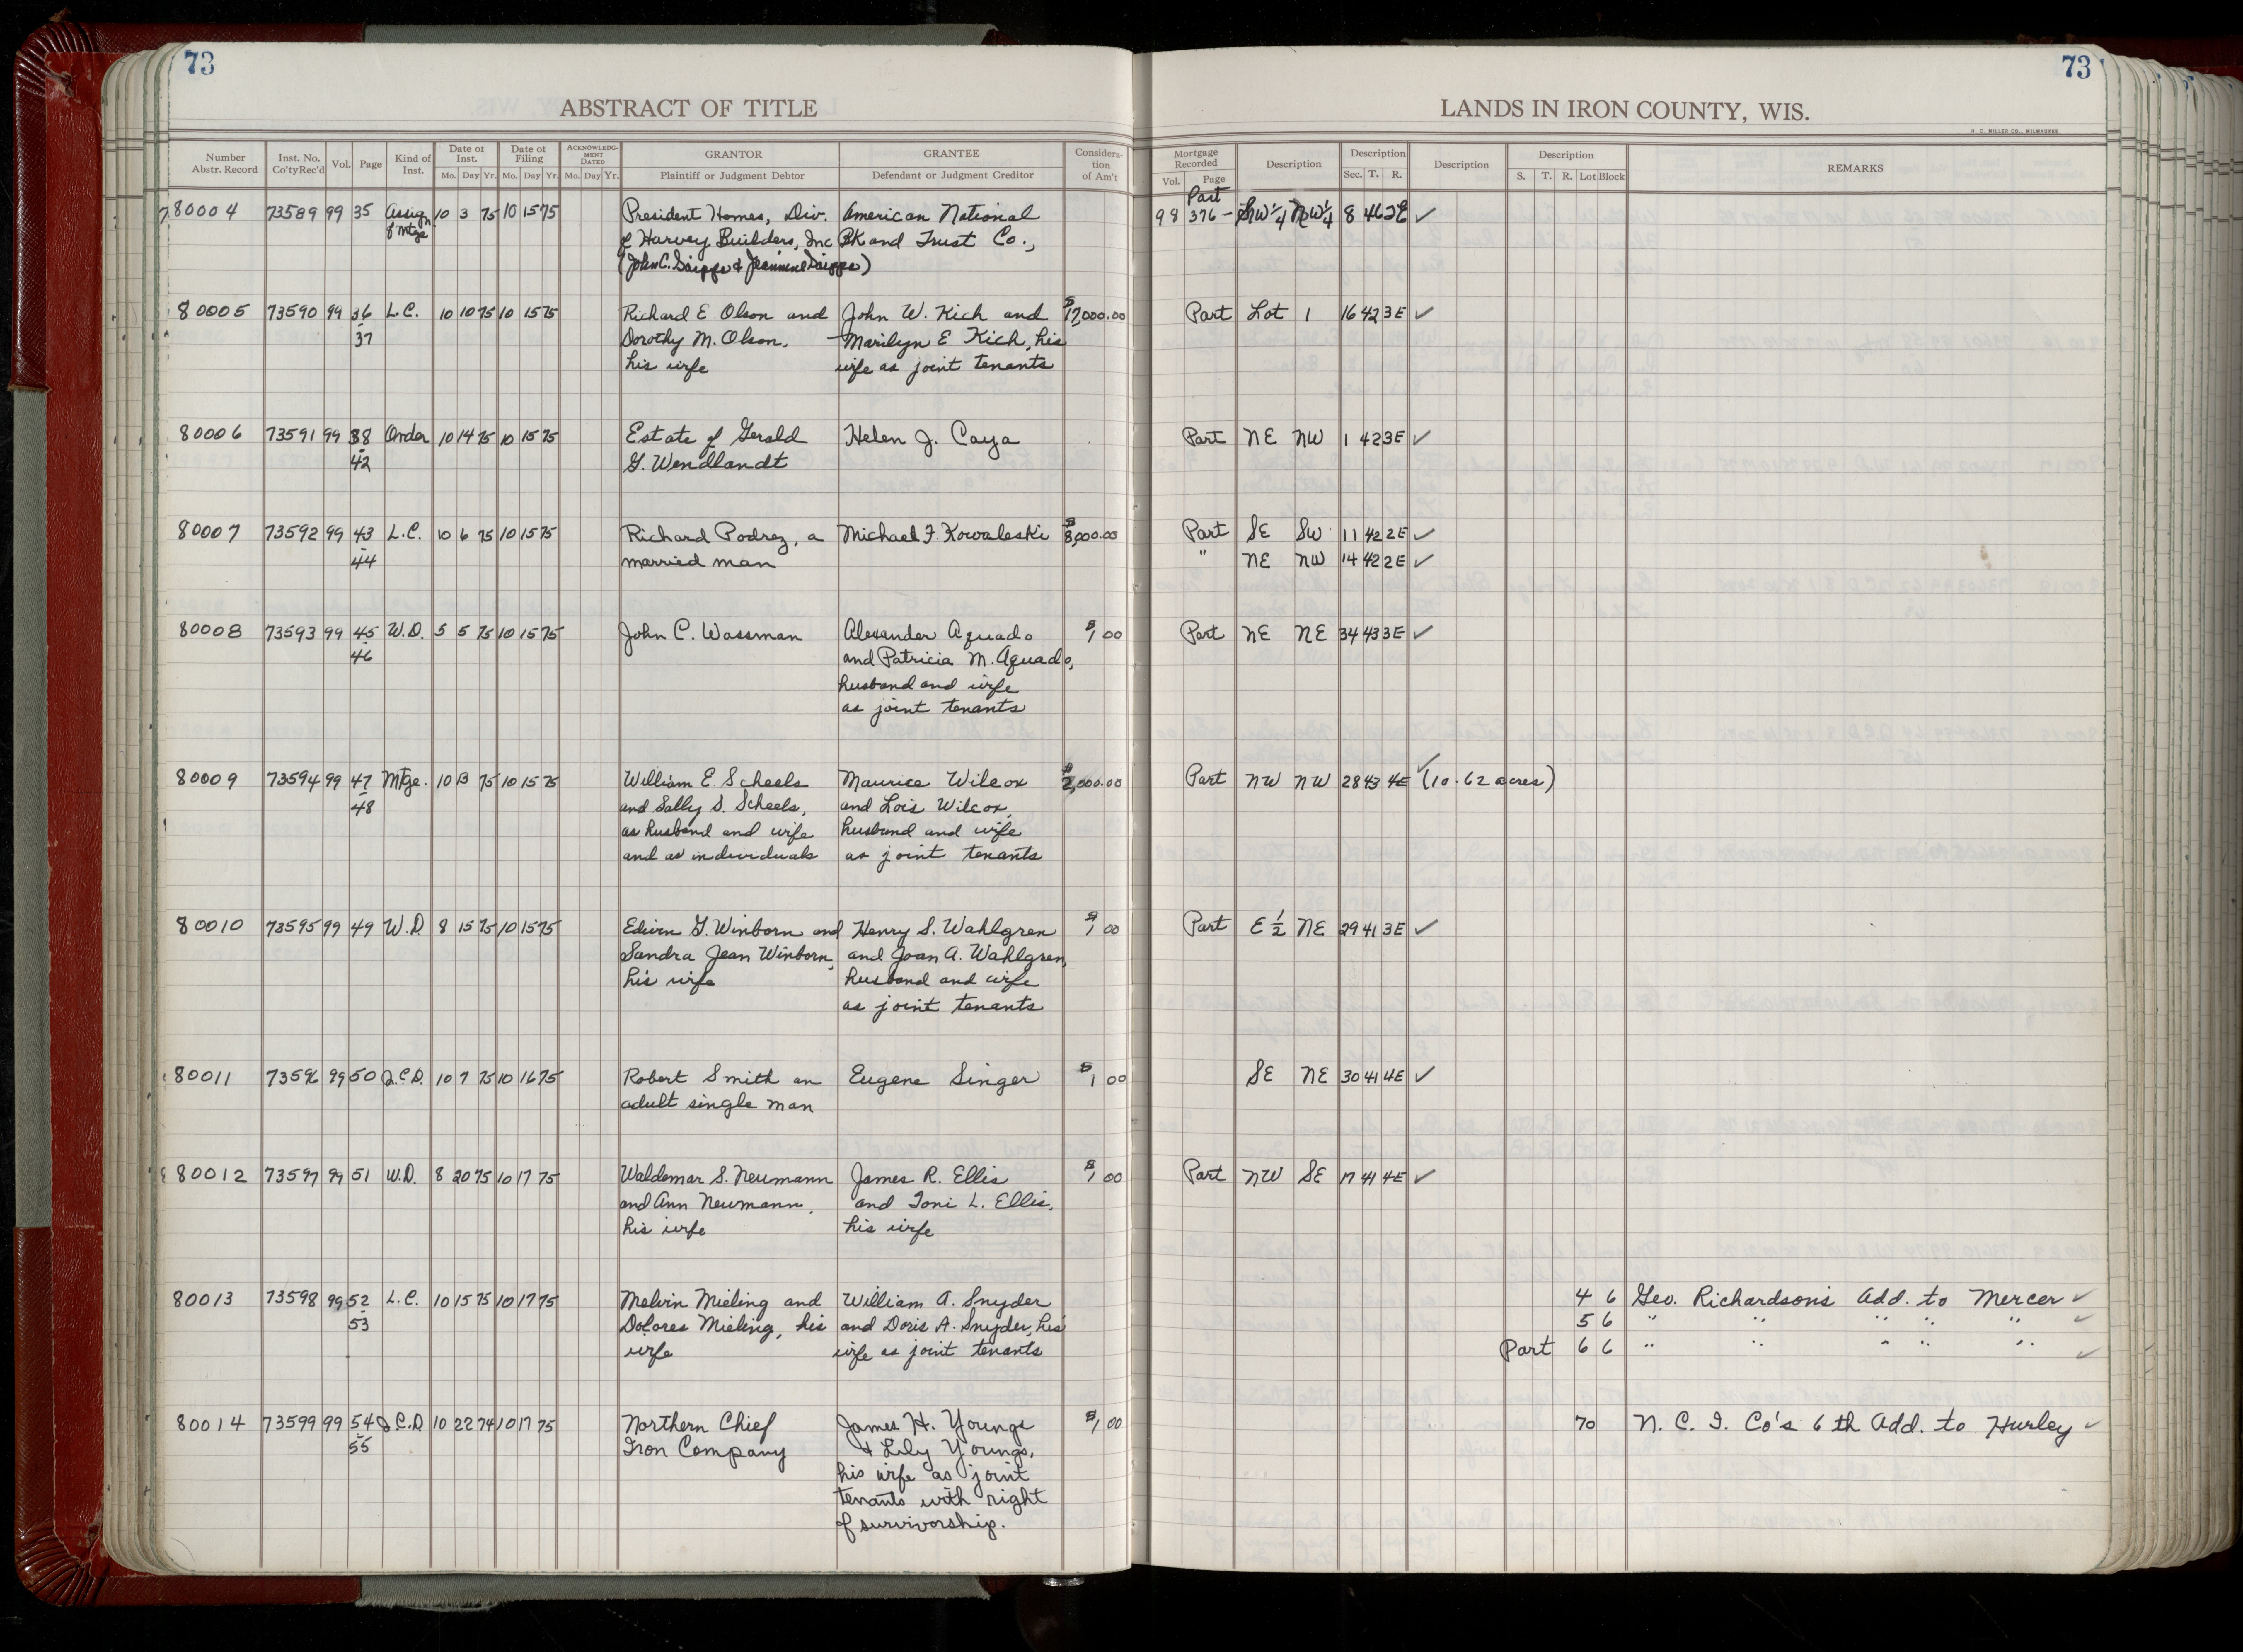 73
73
ABSTRACT OF TITLE
LANDS IN IRON COUNTY, WIS.
H. C. MILLER CO., MILWAUKEE
Number Abstr. Record Inst. No. Co'ty Rec'd Vol. Page Kind of Inst. Date of Inst. Mo. Day Yr. Date of Filing Mo. Day Yr. ACKNOWLEDGMENT DATED Mo. Day Yr. GRANTOR Plaintiff or Judgment Debtor GRANTEE Defendant or Judgment Creditor Consideration of Am't Mortgage Recorded Vol. Page Description Description Sec. T. R. Description Description S. T. R. Lot Block REMARKS
Part
80004 73589 99 35 Assign 10 3 75 10 15 75 President Homes, Div. American National 98 376 - SW 1/4 NW 1/4 8 46 2E ✓
of Mtge of Harvey Builders, Inc BK and Trust Co.,
80005 73590 99 36 L.C. 10 10 75 10 15 75 Richard E. Olson and John W. Kich and Part Lot 1 16 42 3E ✓
37 Dorothy M. Olson, Marilyn E. Kich, his
his wife wife as joint tenants
80006 73591 99 38 Order 10 14 75 10 15 75 Estate of Gerald Helen J. Caya Part NE NW 1 42 3E ✓
42 G. Wendlandt
80007 73592 99 43 L.C. 10 6 75 10 15 75 Richard Podrez, a Michael F Kowaleski $8,000.00 Part SE SW 11 42 2E ✓
44 married man " NE NW 14 42 2E ✓
80008 73593 99 45 W.D. 5 5 75 10 15 75 John C. Wassman Alexander Aguado $1 00 Part NE NE 34 43 3E ✓
46 and Patricia M. Aguado,
husband and wife
as joint tenants
80009 73594 99 47 Mtge. 10 13 75 10 15 75 William E. Scheels Maurice Wilcox $2,000.00 Part NW NW 28 43 4E ✓ (10.62 acres)
48 and Sally S. Scheels, and Lois Wilcox,
as husband and wife husband and wife
and as individuals as joint tenants
80010 73595 99 49 W.D 8 15 75 10 15 75 Edwin G. Winborn and Henry S. Wahlgren $1 00 Part E 1/2 NE 29 41 3E ✓
Sandra Jean Winborn, and Joan A. Wahlgren,
his wife husband and wife
as joint tenants
80011 73596 99 50 Q.C.D. 10 7 75 10 16 75 Robert Smith an Eugene Singer $1 00 SE NE 30 41 4E ✓
adult single man
80012 73597 99 51 W.D. 8 20 75 10 17 75 Waldemar S. Neumann James R. Ellis $1 00 Part NW SE 17 41 4E ✓
and Ann Neumann, and Toni L. Ellis,
his wife his wife
80013 73598 99 52 L.C. 10 15 75 10 17 75 Melvin Mieling and William A. Snyder 4 6 Geo. Richardson's Add. to Mercer ✓
53 Dolores Mieling, his and Doris A. Snyder, his 5 6 " " " " " ✓
wife wife as joint tenants Part 6 6 " " " " " ✓
80014 73599 99 54 Q.C.D 10 22 74 10 17 75 Northern Chief James H. Youngs $1,00 70 N. C. I. Co's 6th Add. to Hurley ✓
55 Iron Company & Lily Youngs,
his wife as joint
tenants with right
of survivorship.